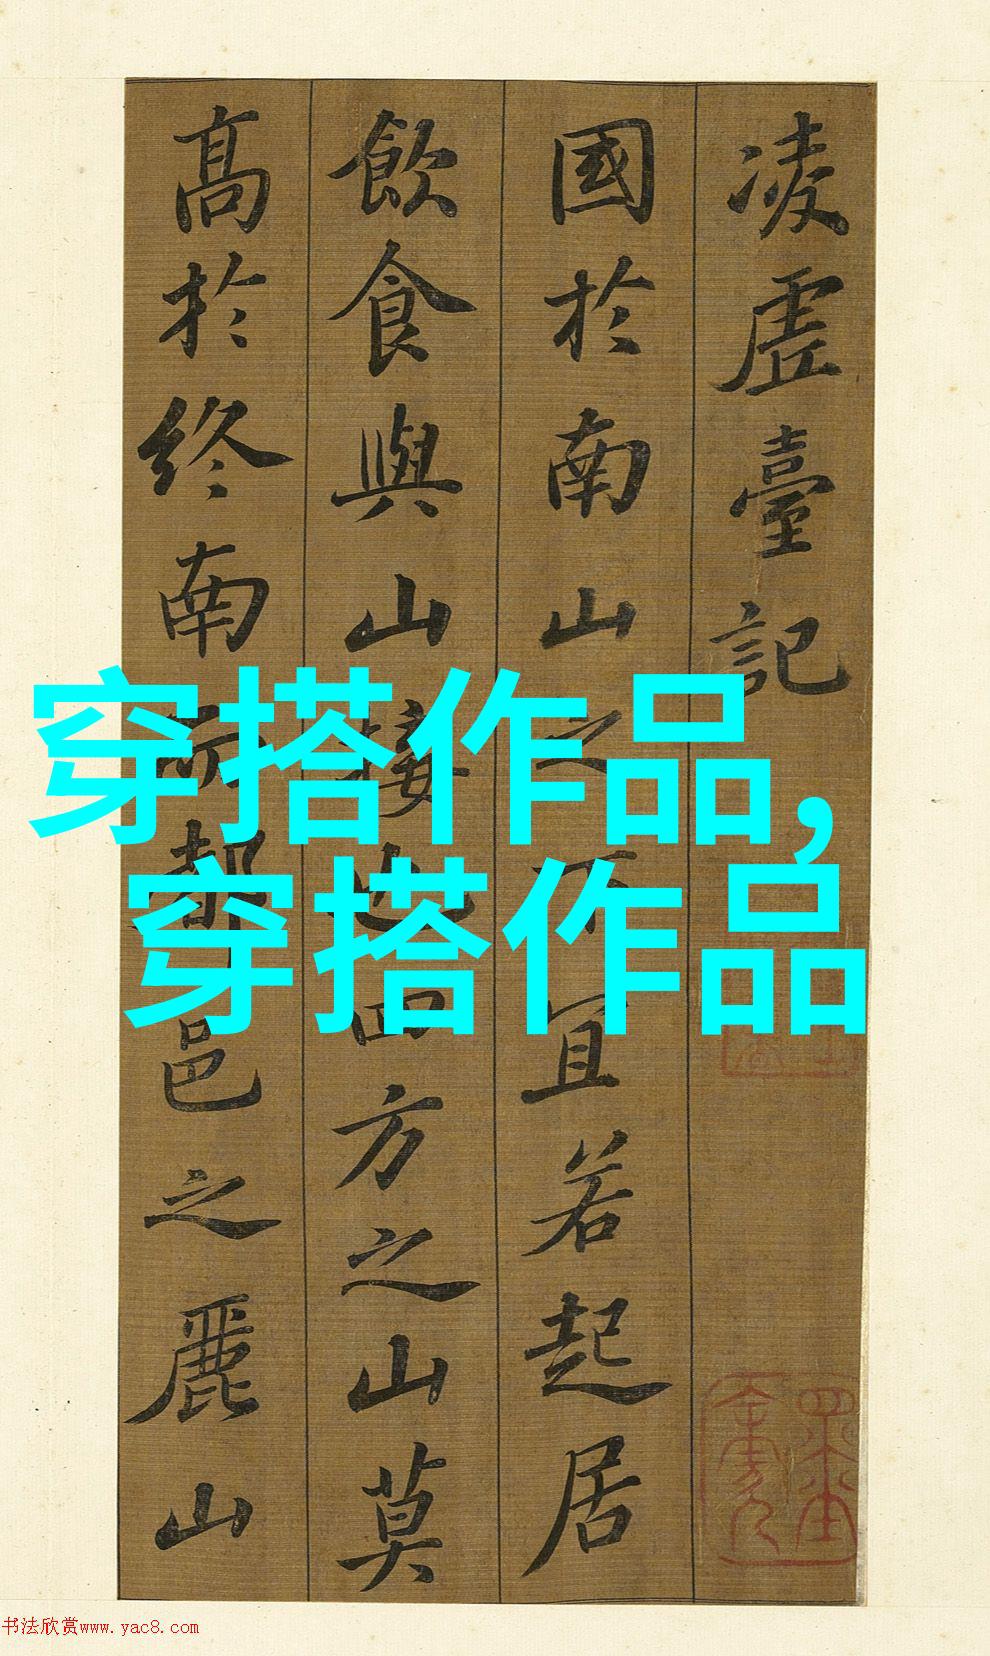 凌虛臺記
國於南山之下宜若起居
飲食與山接也四方之山莫
髙於終南而都邑之麗山
穿搭作品,
穿搭作品
书法欣赏www.yac8.com